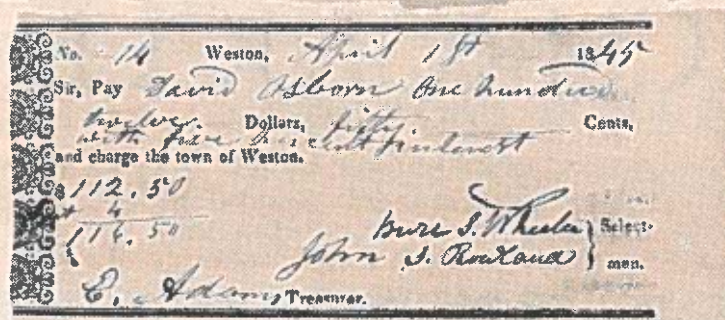 No. 14 Weston, April 1st 1845
Sir, Pay David Osborn One hundred
twelve Dollars, fifty Cents,
with five per cent interest
and charge the town of Weston.
$112.50
4
116.50
Wheeler } Select-
John S. Rowland } men.
E. Adams, Treasurer.